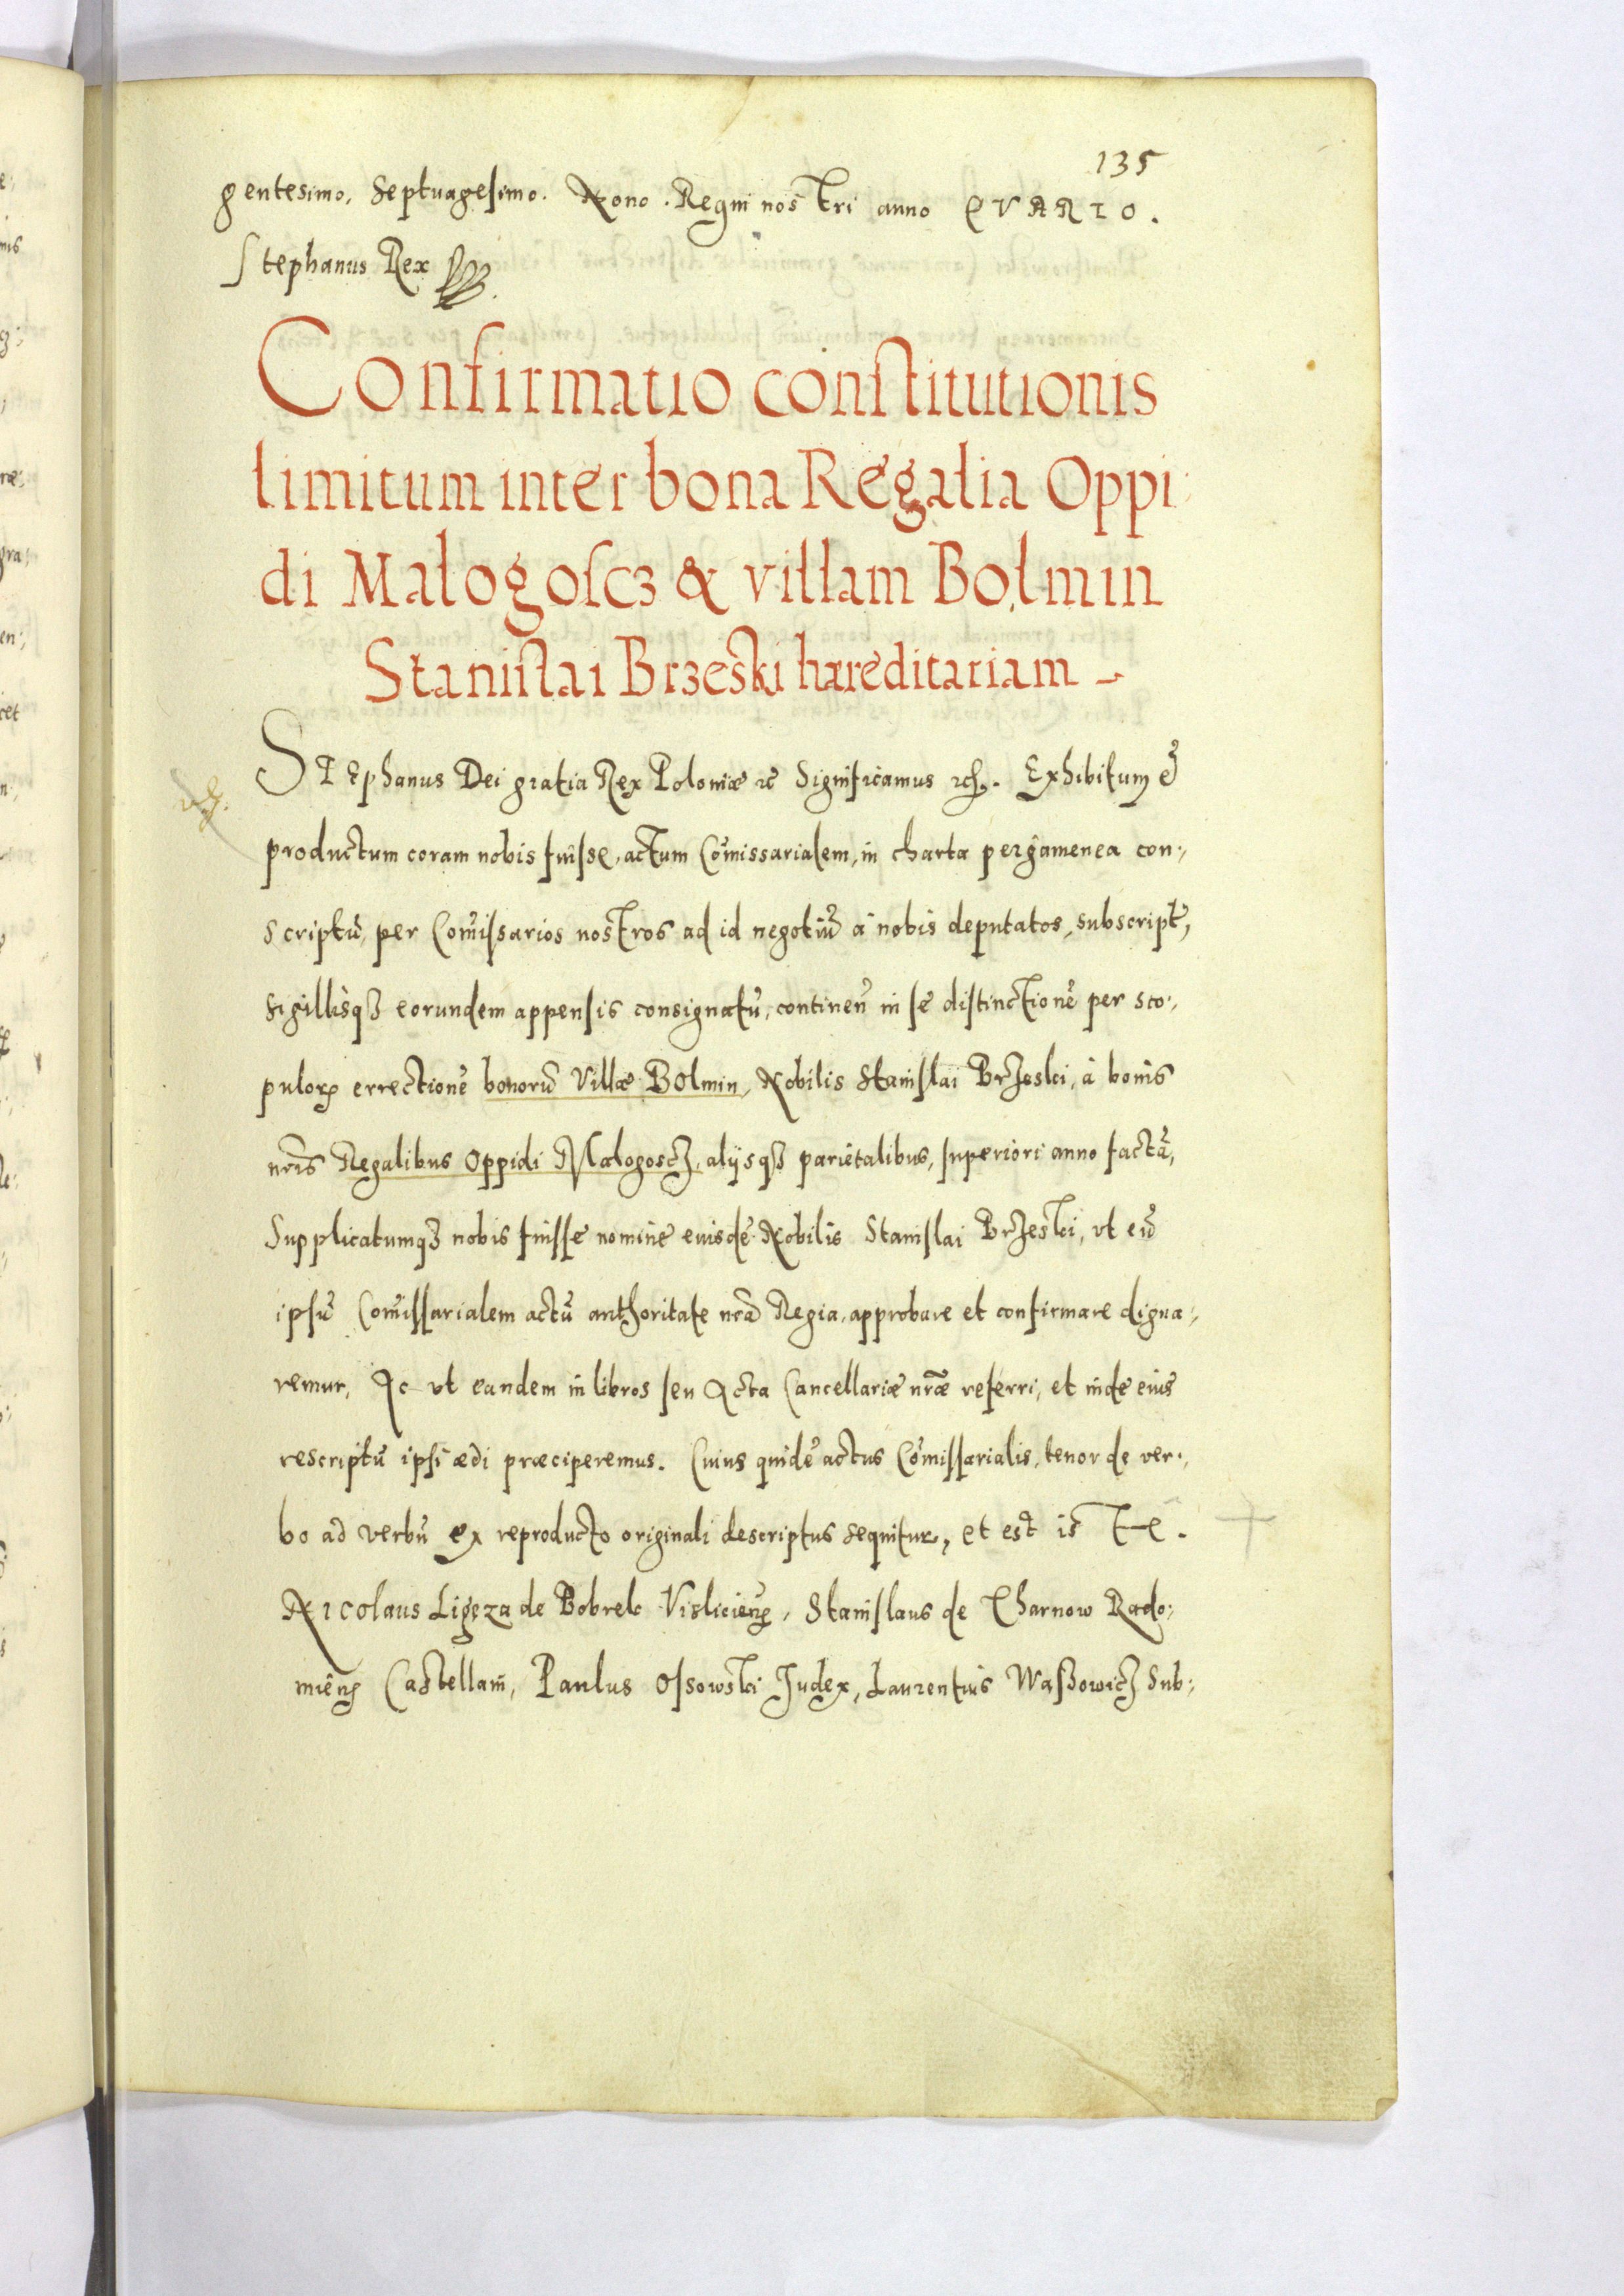 135
gentesimo. Septuagesimo. Nono. Regni nostri anno QVARTO.
Stephanus Rex
Confirmatio conſtitutionis
limitum inter bona Regalia Oppi
di Malogoſcz & villam Bolmin
Staniſlai Brzeski hæreditariam
STEphanus Dei gratia Rex Poloniæ ꝛc Significamus ꝛc̃. Exhibitum &
productum coram nobis fuiſse, actum Com̃issarialem, in charta pergamenea con:,
scriptũ, per Com̃iſsarios nostros ad id negotiũ à nobis deputatos, subscript̃,
sigillisqꝫ eorundem appenſis consignatũ, continen̄ in ſe diſtinctionẽ per sco:,
puloꝝ errectionẽ bonorũ Villæ Bolmin, Nobilis Staniſlai Brzeski, à bonis
nr̃is Regalibus Oppidi Malogoscz, alijsqꝫ parietalibus, ſuperiori anno factã,
Supplicatumqꝫ nobis fuiſſe nomine euisdẽ Nobilis Staniſlai Brzeski, vt eũ
ipſũ Com̃iſſarialem actũ authoritate nr̃a Regia, approbare et confirmare digna:,
remur, Ac vt eandem in libros ſeu Acta Cancellariæ nr̃æ referri, et inde eius
rescriptũ ipſi ædi præciperemus. Cuius quidẽ actus Com̃iſſarialis, tenor de ver:,
bo ad verbũ ex reproducto originali descriptus sequitur, et est is
Nicolaus Ligęza de Bobrek Vislicien̄, Staniſlaus de Tharnow Rado:,
mien̄ Castellani, Paulus Oſsowski Judex, Laurentius Waſsowicz Sub:,